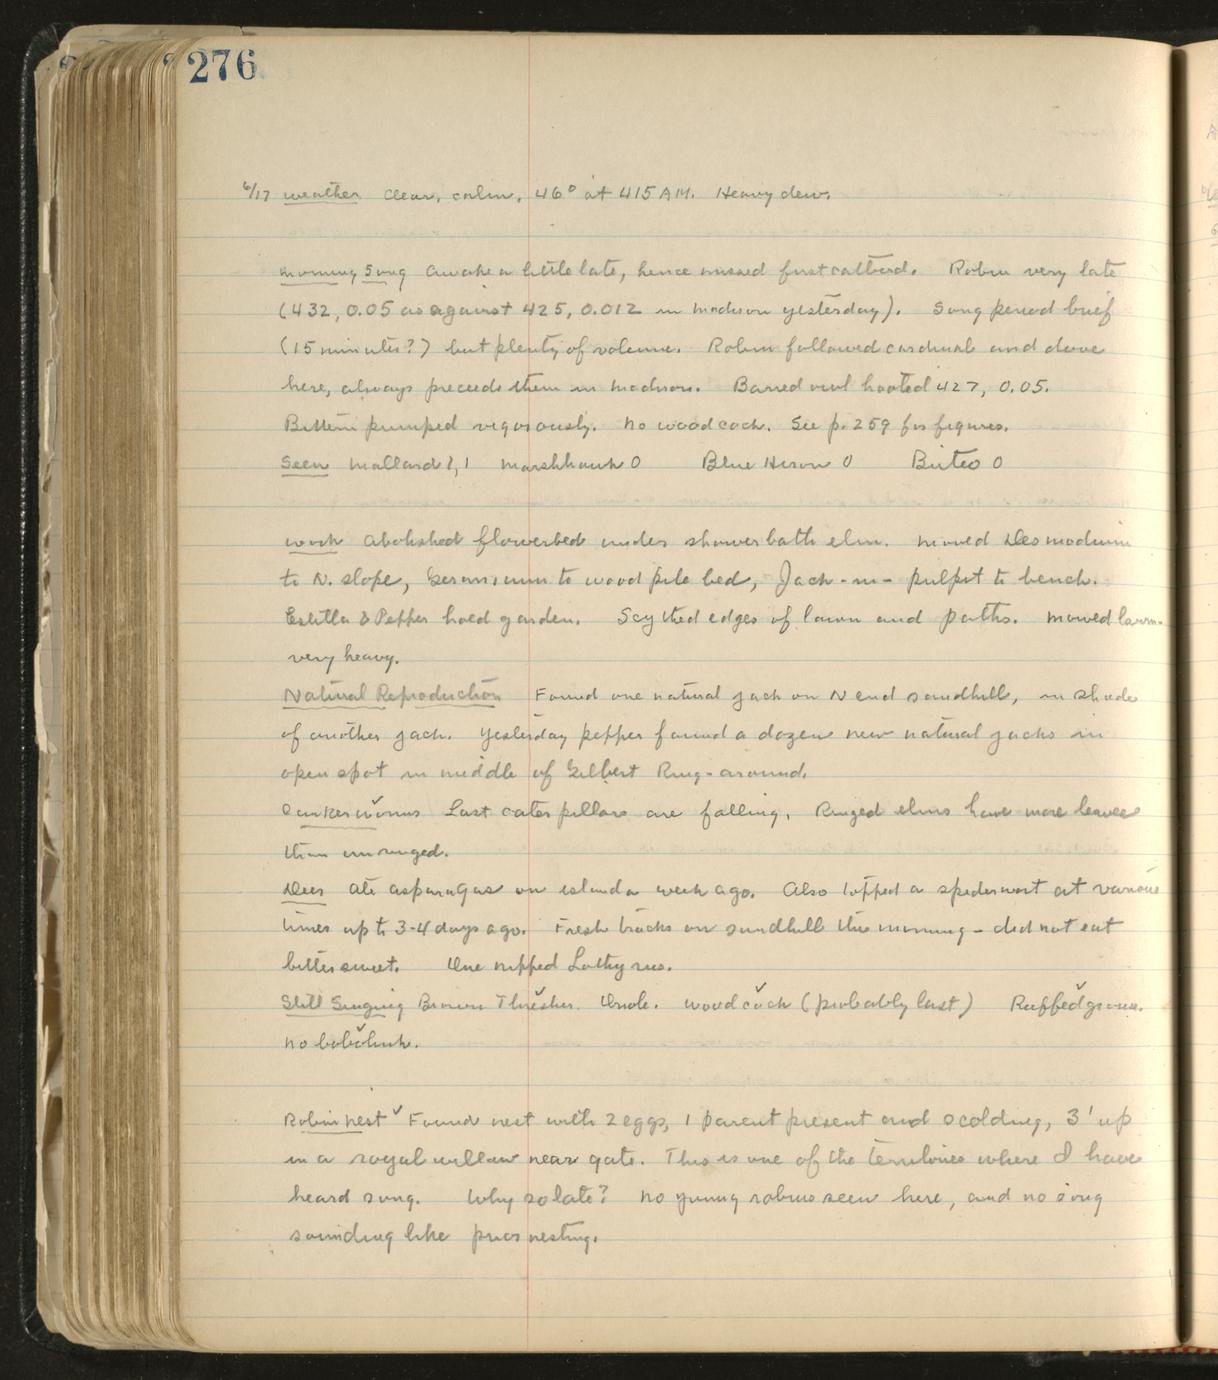 276
6/17 weather Clear, calm, 46° at 415 AM. Heavy dew.
Morning Song Awoke a little late, hence missed first catbird. Robin very late
(432, 0.05 as against 425, 0.012 in Madison yesterday). Song period brief
(15 minutes?) but plenty of volume. Robin followed cardinal and dove
here, always preceeds them in Madison. Barred owl hooted 427, 0.05.
Bittern pumped vigorously. No woodcock. See p. 259 for figures.
Seen Mallard 1, 1 Marshhawk 0 Blue Heron 0 Buteo 0
Work Abolished flowerbed under shower bath elm. Moved Desmodium
to N. slope, Geranium to wood pile bed, Jack-in-pulpit to bench.
Estella & Pepper hoed garden. Scythed edges of lawn and paths. Mowed lawn-
very heavy.
Natural Reproduction Found one natural jack on N end sandhill, in shade
of another jack. Yesterday Pepper found a dozen new natural jacks in
open spot in middle of Gilbert Ring-around.
Cankerworms Last caterpillars are falling. Ringed elms have more leaves
than unringed.
Deer ate asparagus on island a week ago. Also lopped a spiderwort at various
times up to 3-4 days ago. Fresh tracks on sandhill this morning - did not eat
bittersweet. One nipped Lathyrus.
Still Singing Brown Thrasher. Oriole. Woodcock (probably last) Ruffed grouse.
No bobolink.
Robin nest ✓ Found nest with 2 eggs, 1 parent present and scolding, 3' up
in a royal willow near gate. This is one of the territories where I have
heard song. Why so late? No young robins seen here, and no song
sounding like prior nesting.